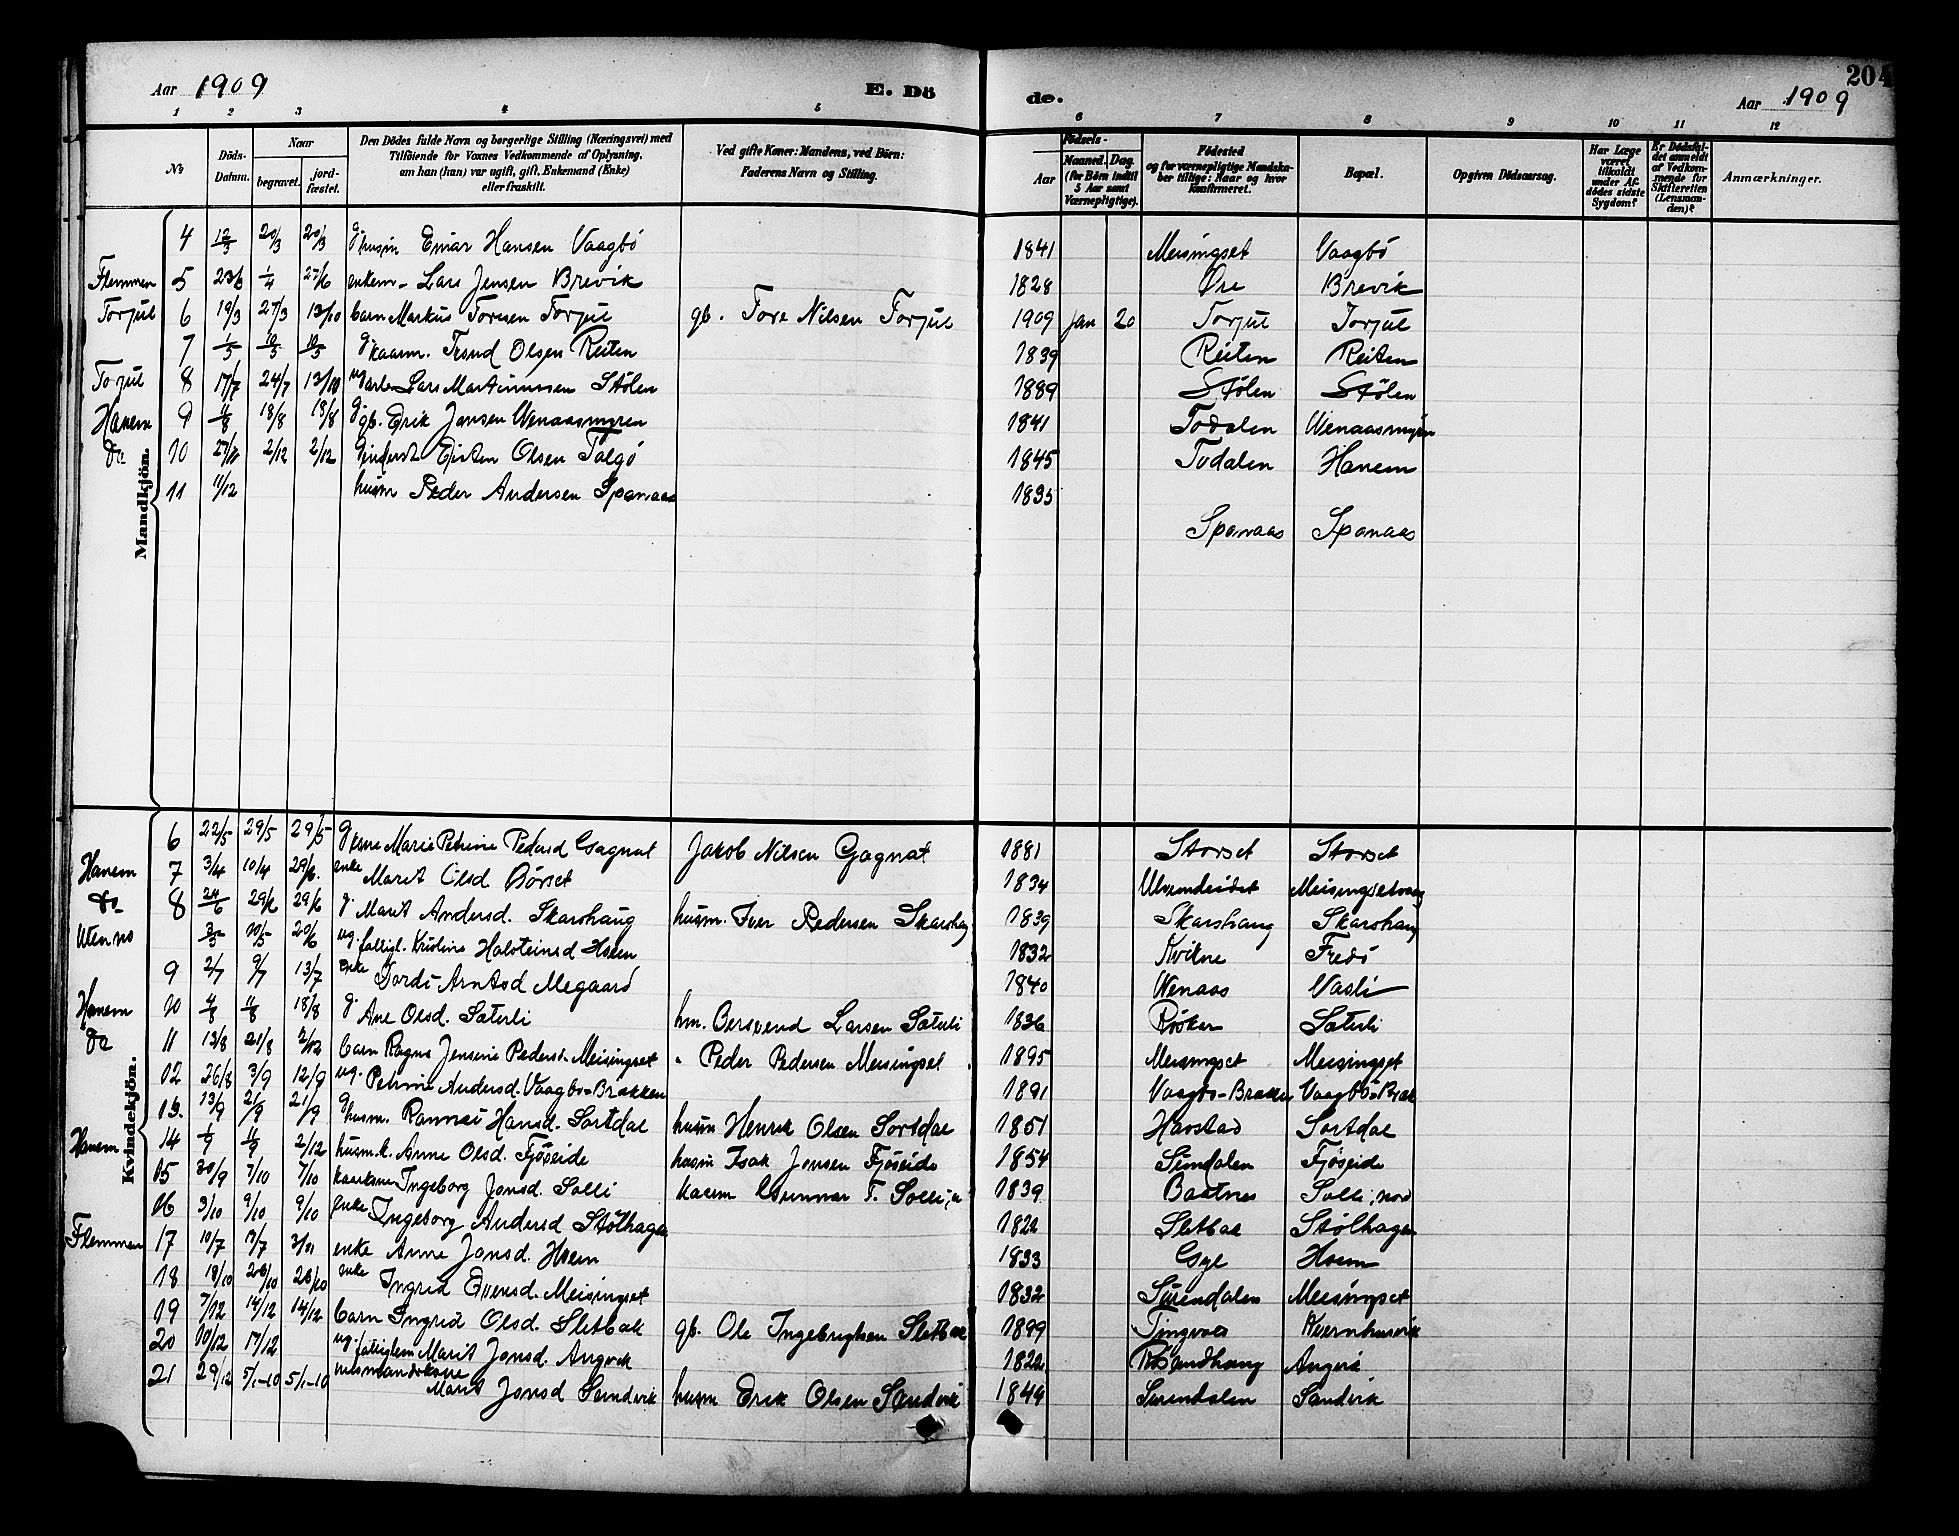 Aar 1909
E. Dö
de.
Aar 1909
204
1 2 3 4 5 6 7 8 9 10 11 12
No
Döds-Datum.
Naar
begravet.
jord-fæstet.
Den Dödes fulde Navn og borgerlige Stilling (Næringsvei) med Tilföiende for Voxnes Vedkommende af Oplysning, om han (hun) var ugift, gift, Enkemand (Enke) eller fraskilt.
Ved gifte Koner: Mandens, ved Börn: Faderens Navn og Stilling.
Födsels-
Aar
Maaned. Dag.
(for Börn indtil 5 Aar samt Værnepligtige).
Födested og for værnepligtige Mandskaber tillige: Naar og hvor konfirmeret.
Bopæl.
Opgiven Dödsaarsag.
Har Læge været tilkaldt under Afdödes sidste Sygdom?
Er Dödsfaldet anmeldt af Vedkommende for Skifteretten (Lensmanden)?
Anmærkninger.
Mandkjön.
4 12/3 20/3 20/3 g husm Einar Hansen Vaagbö 1841 Meisingset Vaagbö
Flemmen 5 23/3 1/4 27/6 enkem. Lars Jensen Brevik 1828 Öre Brevik
Torjul 6 19/3 27/3 13/10 barn Markus Toresen Torjul gb. Tore Nilsen Torjul 1909 Jan 20 Torjul Torjul
7 1/5 10/5 10/5 g kaarm. Trond Olsen Reiten 1839 Reiten Reiten
Torjul 8 17/7 24/7 13/10 ug arb. Lars Martinussen Stölen 1889 Stölen Stölen
Hanem 9 11/8 18/8 18/8 g gb. Erik Jonsen Wenaasmyren 1841 Todalen Wenaasmyren
Do 10 27/11 2/12 2/12 Olsen Talgö 1845 Todalen Hanem
11 11/12 husm Peder Andersen Spanaas 1835
Spanaas Spanaas
Kvindekjön.
6 22/5 29/5 29/5 g kone Marie Petrine Pedersd Gagnat Jakob Nilsen Gagnat 1881 Storset Storset
Hanem 7 3/4 10/4 29/6 enke Marit Olsd Börset 1834 Meisingsetvaag
Do 8 24/6 29/6 29/6 g. Marit Andersd. Skarshaug husm. Iver Pedersen Skarshag 1839 Skarshaug Skarshaug
3/5 10/5 20/6 ug. fattigl. Kristine Halsteinsd Hoem 1832 Kvilne Fredö
9 2/7 9/7 13/7 enke Tordi Arntsd Megaard 1840 Wenaas Vasli
Hanem 10 4/8 11/8 18/8 g Ane Olsd. Säterli hm. Bersvend Larsen Säterli 1836 Röskar Säterli
Do 11 13/8 21/8 2/12 barn Ragna Jensine Pedersd. Meisingset " Peder Pedersen Meisingset 1895 Meisingset Meisingset
12 26/8 3/9 12/9 ug. Petrine Andersd. Vaagbö-Brakken 1891 Vaagbö-Brakken Vaagbö-Brak
13. 13/9 21/9 21/9 g husm. Rannei Hansd. Sortdal husm Henrik Olsen Sortdal 1851 Havstad Sortdal
Hanem 14 4/9 11/9 2/12 husm.k. Anne Olsd. Fjöseide husm Isak Jonsen Fjöseide 1854 Sundalen Fjöseide
15 30/9 7/10 7/10 kaarkone Ingeborg Jonsd. Solli kaarm Gunnar T. Solli 1839 Baatnes Solli, nord
16 3/10 9/10 9/10 enke Ingeborg Andersd Stölhagen 1822 Sletbak Stölhagen
Flemmen 17 10/7 17/7 3/11 enke Anne Jonsd. Hoem 1833 Gyl Hoem
18 19/10 26/10 26/10 enke Ingrid Evensd. Meisingset 1832 Surendalen Meisingset
19 7/12 14/12 14/12 barn Ingrid Olsd. Sletbak gb. Ole Ingebrigtsen Sletbak 1899 Tingvold Kvernhusvik
20 10/12 17/12 ug. fattiglem Marit Jonsd. Angvik 1822 Rösandhaug Angvik
21 29/12 5/1-10 5/1-10 husmandskone
Marit Jonsd Sandvik husm Erik Olsen Sandvik 1849 Surendalen Sandvik